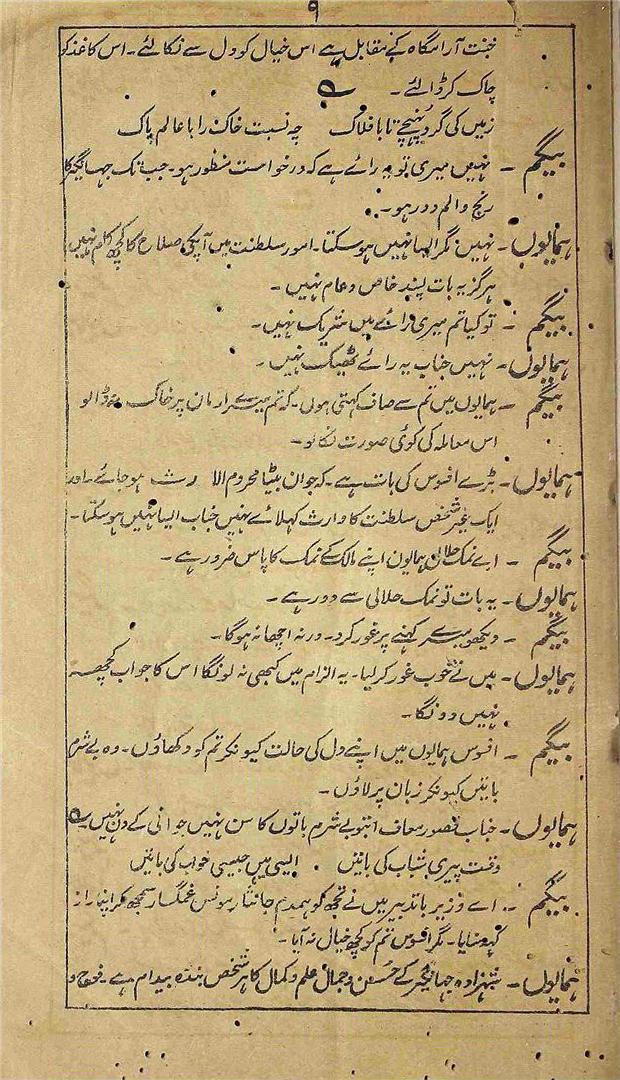 ۹
جنت آرامگاہ کے مقابل ہے اس خیال کو دل سے نکالئے۔ اس کاغذ کو
چاک کر ڈالئے۔
زمیں کی گرد پہنچے تا با فلاک چہ نسبت خاک را با عالم پاک
بیگم ۔ نہیں میری تو یہ رائے ہے کہ درخواست منظور ہو۔ جب تک جہانگیر کا
رنج و الم دور ہو۔
ہمایوں۔ نہیں مگر ایسا نہیں ہو سکتا۔ امور سلطنت میں آپکی صلاح کا کچھ کام نہیں
ہرگز یہ بات پسند خاص و عام نہیں ۔
بیگم ۔ تو کیا تم میری رائے میں شریک نہیں۔
ہمایوں۔ نہیں جناب یہ رائے ٹھیک نہیں ۔
بیگم ۔ ہمایوں میں تم سے صاف کہتی ہوں۔ کہ تم میرے ارمان پر خاک نہ ڈالو
اس معاملہ کی کوئی صورت نکالو۔
ہمایوں۔ بڑے افسوس کی بات ہے۔ کہ جوان بیٹا محروم الارث ہو جائے۔ اور
ایک غیر شخص سلطنت کا وارث کہلائے نہیں جناب ایسا نہیں ہو سکتا۔
بیگم ۔ اے نمک حلال ہمایون اپنے مالک کے نمک کا پاس ضرور ہے ۔
ہمایوں۔ یہ بات تو نمک حلالی سے دور ہے ۔
بیگم ۔ دیکھو میرے کہنے پر غور کرو۔ ورنہ اچھا نہ ہوگا۔
ہمایوں۔ میں نے خوب غور کر لیا۔ یہ الزام میں کبھی نہ لونگا اس کا جواب کچھ
نہیں دونگا۔
بیگم ۔ افسوس ہمایوں میں اپنے دل کی حالت کیونکر تم کو دکھاؤں۔ وہ بے شرم
باتیں کیونکر زبان پر لاؤں ۔
ہمایوں۔ جناب قصور معاف اب تو بے شرم باتوں کا سن نہیں جوانی کے دن نہیں۔
وقت پیری شباب کی باتیں ایسی ہیں جیسی خواب کی باتیں
بیگم ۔ اے وزیر با تدبیر میں نے تجھ کو ہمدم جانثار مونس غمگسار سمجھ کر اپنا راز
کہہ سنایا۔ مگر افسوس تم کو کچھ خیال نہ آیا۔
ہمایوں۔ شہزادہ جہانگیر کے حسن و جمال علم و کمال کا ہر شخص بندہ بیدام ہے۔ فوج و